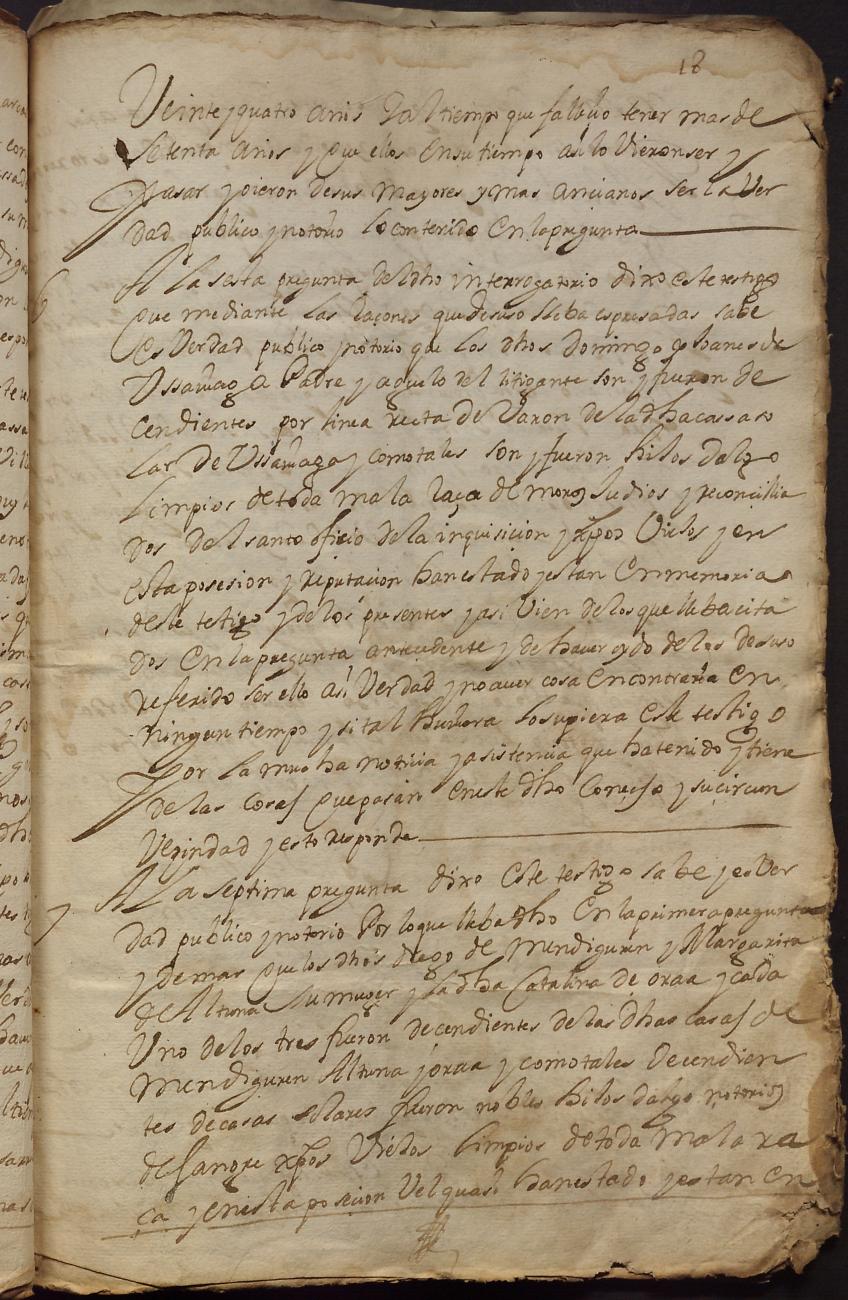 18
Veinte y quatro anis y al tiempo que fallecio tener mas de
setenta años y que ellos en su tiempo asi lo vieron ser y
pasar y oieron de sus mayores y mas ancianos ser la ver
dad publico y notorio lo contenido en la pregunta
6
A la sesta pregunta del dho interrogatorio dixo este testigo
que mediante las raçones que de suso lleba espresadas sabe
es verdad publico y notorio que los dhos Domingo y Joanes de
Ussarraga Padre y aguelo del litigante son y fueron de
cendientes por linea recta de Varon de la dha cassa so
lar de Ussarraga y como tales son y fueron hijos dalgo
limpios de toda mala raça de moros Judios y reconcilia
dos del santo oficio de la inquisicion y xpos Viejos y en
esta posesion y reputacion han estado y estan en memoria
deste testigo y de los presentes y asi vien de los que lleba cita
dos en la pregunta antecedente y de haver oydo de los de suso
referido ser ello asi Verdad y no aver cosa en contraria en
ningun tiempo y si tal hubiera lo supiera este testigo
Por la mucha noticia y asistencia que ha tenido y tiene
de las cosas que pasan en este dho Concejo y su circun
Vezindad y esto responde
7
A la septima pregunta dixo este testigo sabe y es Ver
dad publico y notorio Por lo que lleba dho en la primera pregunta
y demas que los dhos diego de Mendiguren y Margarita
de Altuna su muger y la dha Catalina de oraa y cada
Uno de los tres fueron decendientes de las dhas casas de
Mendiguren Altuna y oraa y como tales Decendien
tes de casas solares fueron nobles hijos dalgo notorios
de sangre xpos Viejos limpios de toda mala ra
ça y en esta posecion Vel quasi han estado y estan en